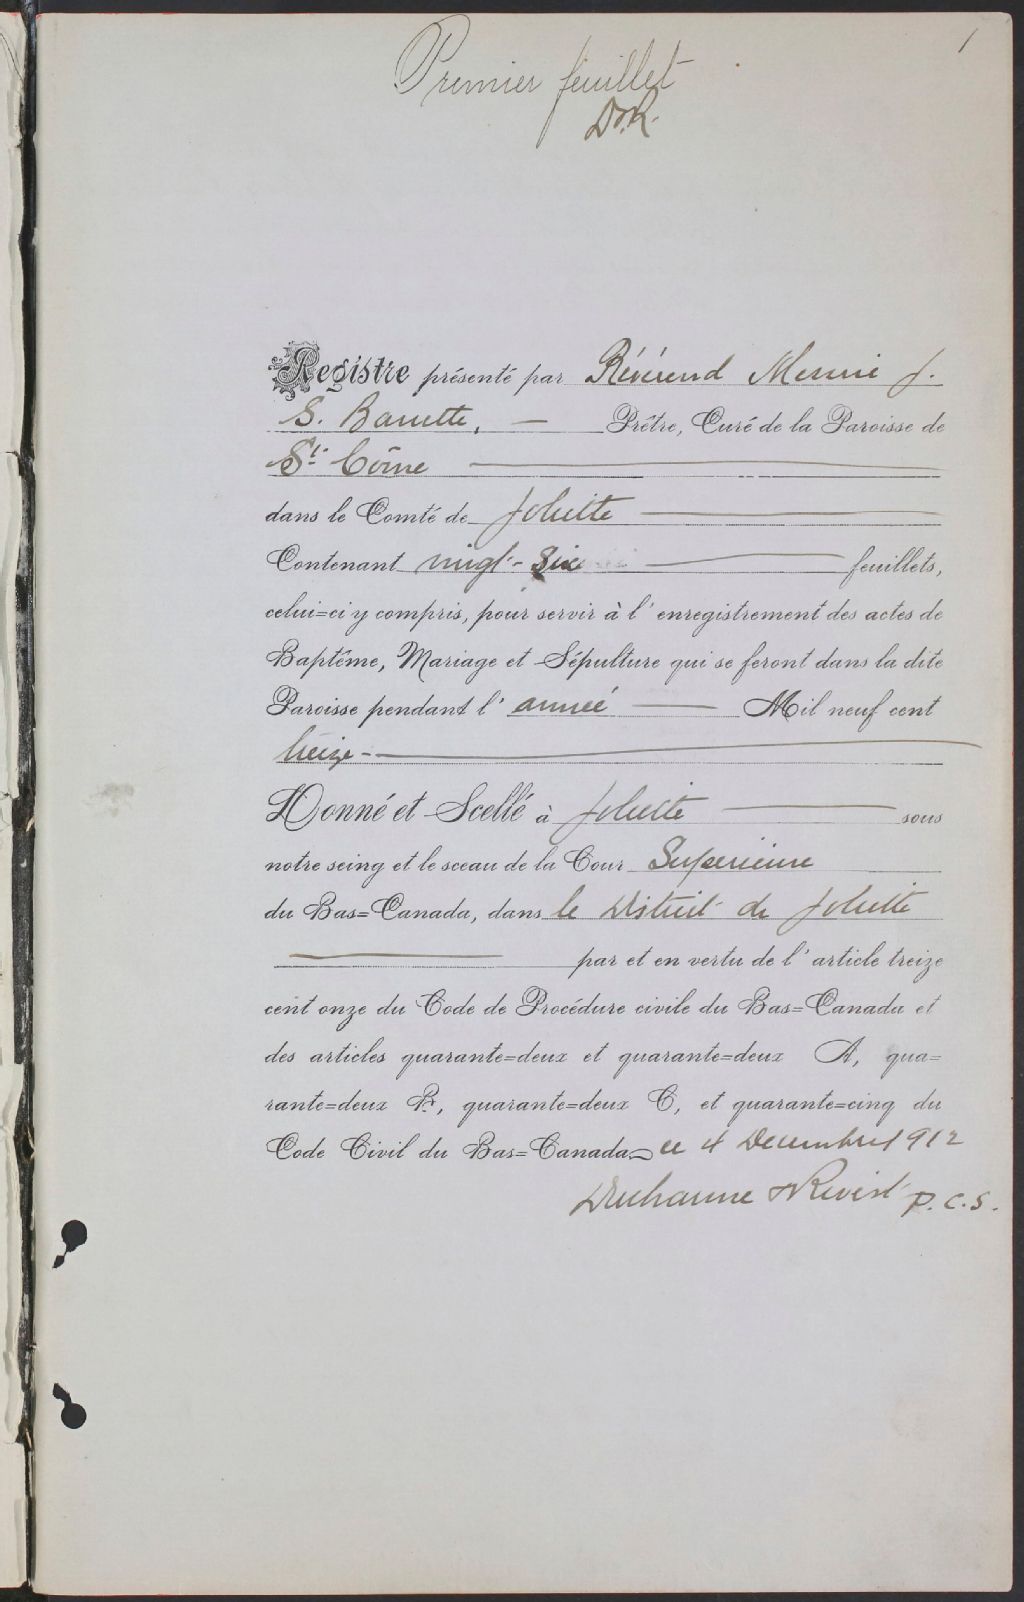 1
Premier feuillet
D&R.
Registre présenté par Révérend Messire J.
S. Barrette, — Prêtre, Curé de la Paroisse de
St. Côme
dans le Comté de Joliette
Contenant vingt-six feuillets,
celui=ci y compris, pour servir à l'enregistrement des actes de
Baptême, Mariage et Sépulture qui se feront dans la dite
Paroisse pendant l'année — Mil neuf cent
treize -
Donné et Scellé à Joliette — sous
notre seing et le sceau de la Cour Supérieure
du Bas=Canada, dans le District de Joliette
par et en vertu de l'article treize
cent onze du Code de Procédure civile du Bas=Canada et
des articles quarante=deux et quarante=deux A, qua=
rante=deux B, quarante=deux C, et quarante=cinq du
Code Civil du Bas=Canada ce 4 Decembre 1912
Ducharme & Rivest P.C.S.